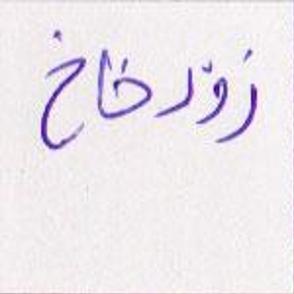 زوّدخاخ